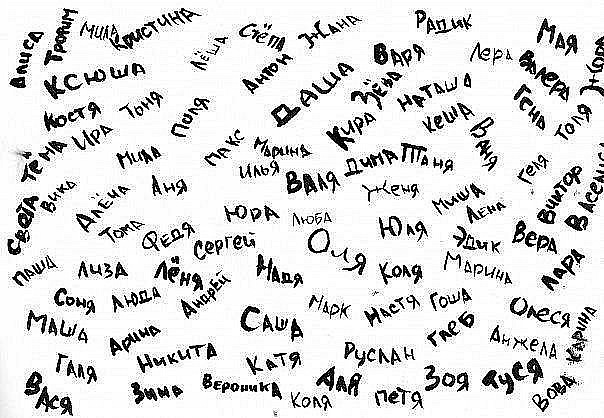 Алиса
Трофим
Мила
Кристина
Лёша
Стёпа
Жана
Радик
Варя
Лера
Мая
Валера
Жора
Ксюша
Антон
Даша
Зёва
Наташа
Гена
Толя
Костя
Тоня
Поля
Кира
Кеша
Ваня
Тёма
Ира
Мила
Макс
Марина
Илья
Дима
Таня
Геля
Виктор
Василиса
Света
Вика
Алёна
Аня
Валя
Женя
Миша
Лена
Тома
Федя
Юра
Люба
Сергей
Оля
Юля
Эдик
Вера
Лара
Паша
Лиза
Лёня
Андрей
Надя
Коля
Марина
Соня
Люда
Марк
Настя
Гоша
Олеся
Карина
Маша
Арина
Саша
Глеб
Анжела
Галя
Никита
Катя
Руслан
Вася
Зина
Вероника
Коля
Аля
Петя
Зоя
Дуся
Вова